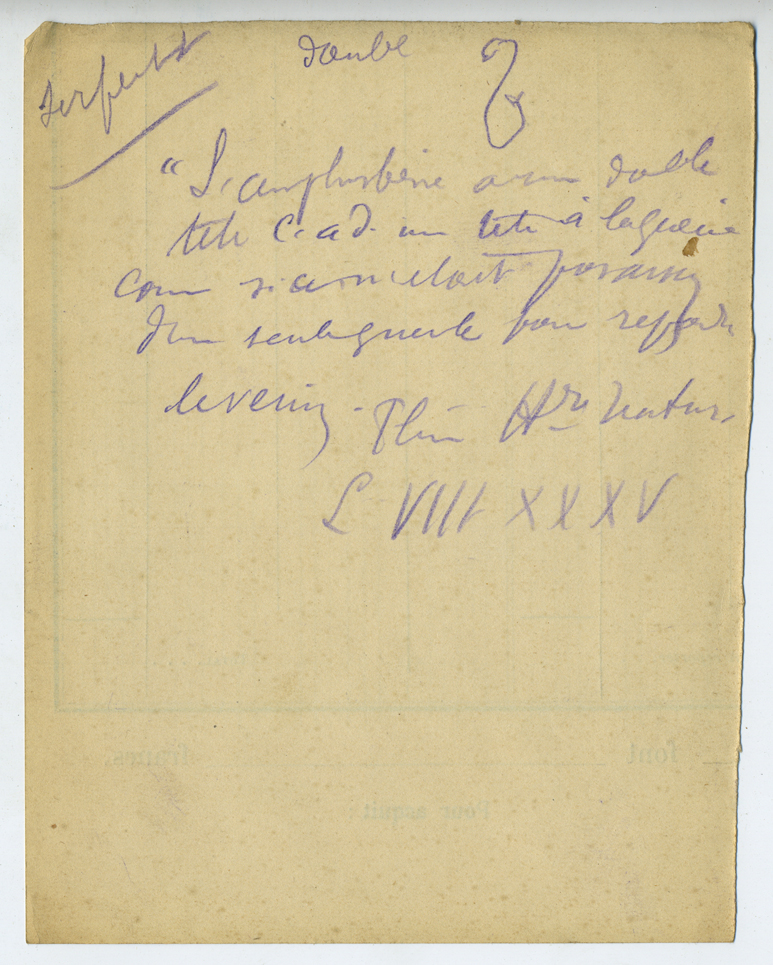 serpents
double
"L'amphisbène a une double
tete c. a d. une tete à la queue
comme si ce n'etait pas assez
d'une seule gueule pour repandre
le venin. Plin Hre natur.
L VIII XXXV